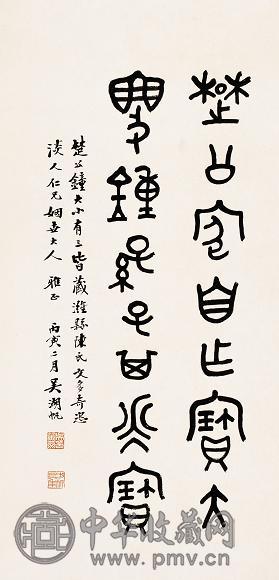 楚公自乍寶大
鐘孫子其永寶
楚公鐘大小有三皆藏濰縣陳氏文多奇恣
淡人仁兄姻世大人 雅正 丙寅二月吳湖帆
中华收藏网
www.pmv.cn